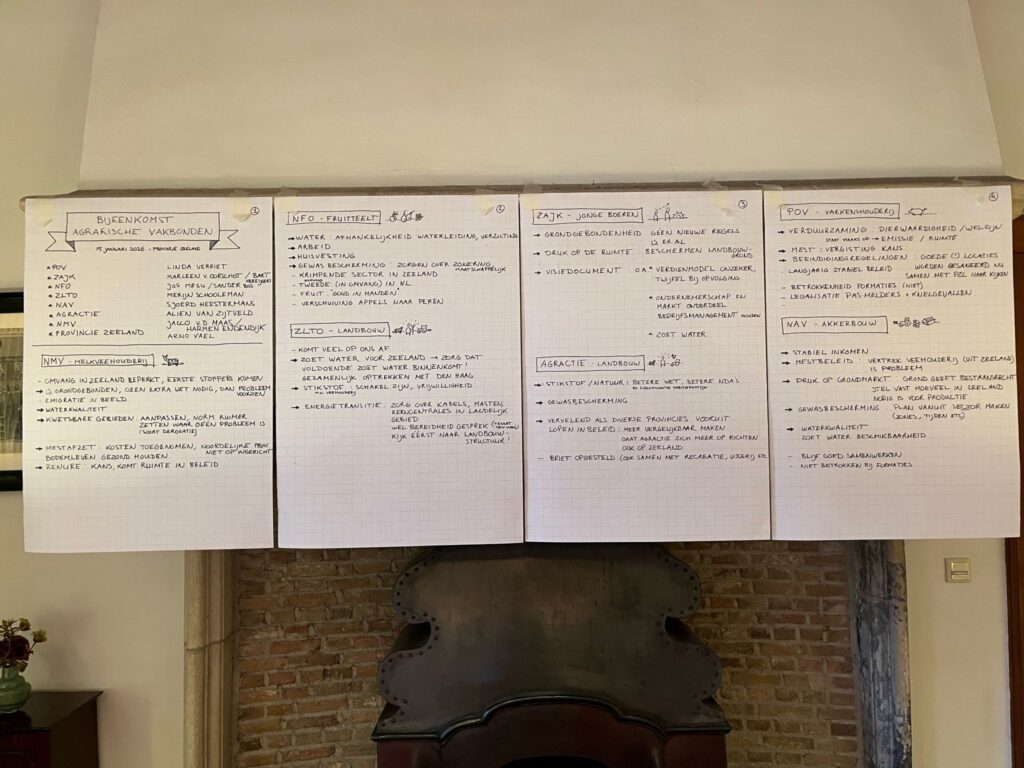 1
BIJEENKOMST
AGRARISCHE VAKBONDEN
15 JANUARI 2026 - PROVINCIE ZEELAND
* POV LINDA VERRIET
* ZAJK MARLEEN V. OORSCHOT / BART
* NFO JOS MESU / SANDER BOS
* ZLTO MERIJN SCHOOLEMAN
* NAV SJOERD HEESTERMANS
* AGRACTIE ALIEN VAN ZIJTVELD
* NMV JACCO V.D MAAS /
HARMEN ENDENDIJK
* PROVINCIE ZEELAND ARNO VAEL
NMV - MELKVEEHOUDERIJ
- OMVANG IN ZEELAND BEPERKT, EERSTE STOPPERS KOMEN
→ IS GRONDGEBONDEN, GEEN EXTRA WET NODIG, DAN PROBLEEM
VOORZIEN
- EMIGRATIE IN BEELD
→ WATERKWALITEIT
→ KWETSBARE GEBIEDEN: AANPASSEN, NORM RUIMER
ZETTEN WAAR GEEN PROBLEEM IS
(SOORT DEROGATIE)
→ MESTAFZET: KOSTEN TOEGENOMEN, NOORDELIJKE PROV.
NIET OP INGERICHT
BODEMLEVEN GEZOND HOUDEN
→ RENURE: KANS, KOMT RUIMTE IN BELEID
2
NFO - FRUITTEELT
→ WATER: AFHANKELIJKHEID WATERLEIDING, VERZILTING
→ ARBEID
→ HUISVESTING
→ GEWASBESCHERMING: ZORGEN OVER ZONERING
MAATSCHAPPELIJK
- KRIMPENDE SECTOR IN ZEELAND
- TWEEDE (IN OMVANG) IN NL
- FRUIT "GOUD IN HANDEN"
- VERSCHUIVING APPELS NAAR PEREN
ZLTO - LANDBOUW
- KOMT VEEL OP ONS AF
→ ZOET WATER VOOR ZEELAND → ZORG DAT
VOLDOENDE ZOET WATER BINNENKOMT!
GEZAMENLIJK OPTREKKEN MET DEN HAAG
→ STIKSTOF: SCHAKEL ZIJN, VRIJWILLIGHEID
→ ENERGIE TRANSITIE: ZORG OVER KABELS, MASTEN,
KERNCENTRALES IN LANDELIJK
GEBIED
WEL BEREIDHEID GESPREK
KIJK EÉRST NAAR LANDBOUW-
STRUCTUUR!
3
ZAJK - JONGE BOEREN
→ GRONDGEBONDENHEID GÉÉN NIEUWE REGELS
IS ER AL
→ DRUK OP DE RUIMTE BESCHERMEN LANDBOUW-
GROND
→ VISIEDOCUMENT O.A. * VERDIENMODEL ONZEKER,
TWIJFEL BIJ OPVOLGING
* ONDERNEMERSCHAP EN
MARKT ONDERDEEL
BEDRIJFSMANAGEMENT HOUDEN
* ZOET WATER
AGRACTIE - LANDBOUW
→ STIKSTOF/NATUUR: BETERE WET, BETERE NDA'S
→ GEWASBESCHERMING
→ VERVELEND ALS DIVERSE PROVINCIES VOORUIT
LOPEN IN BELEID: MEER VERGELIJKBAAR MAKEN
GAAT AGRACTIE ZICH MEER OP RICHTEN
OOK OP ZEELAND.
- BRIEF OPGESTELD (OOK SAMEN MET RECREATIE, VISSERIJ ETC
4
POV - VARKENSHOUDERIJ
→ VERDUURZAMING: DIERWAARDIGHEID/WELZIJN
STAAT HAAKS OP → EMISSIE / RUIMTE
→ MEST: VERGISTING KANS
→ BEËINDIGINGSREGELINGEN: GOEDE (!) LOCATIES
WORDEN GESANEERD NU
SAMEN MET PZL NAAR KIJKEN
- LANGJARIG STABIEL BELEID
- BETROKKENHEID FORMATIES (NIET)
- LEGALISATIE PAS-MELDERS + KNELGEVALLEN
-
NAV - AKKERBOUW
→ STABIEL INKOMEN
→ MESTBELEID: VERTREK VEEHOUDERIJ (UIT ZEELAND)
IS PROBLEEM
→ DRUK OP GRONDMARKT: GROND GEEFT BESTAANSRECHT
STEL VAST HOEVEEL IN ZEELAND
NODIG IS VOOR PRODUCTIE
→ GEWASBESCHERMING: PLAN VANUIT SECTOR MAKEN
(ZONES, TIJDEN ETC)
→ WATERKWALITEIT
ZOET WATER BESCHIKBAARHEID
- BLIJF GOED SAMENWERKEN
- NIET BETROKKEN BIJ FORMATIES